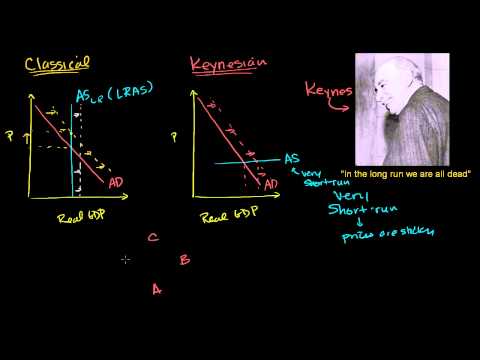 Classical
AS LR (LRAS)
P
AD
Real GDP
Keynesian
P
AS
very
short run
AD
Real GDP
Keynes
"In the long run we are all dead"
Very
Short-run
prices are sticky
C
B
A